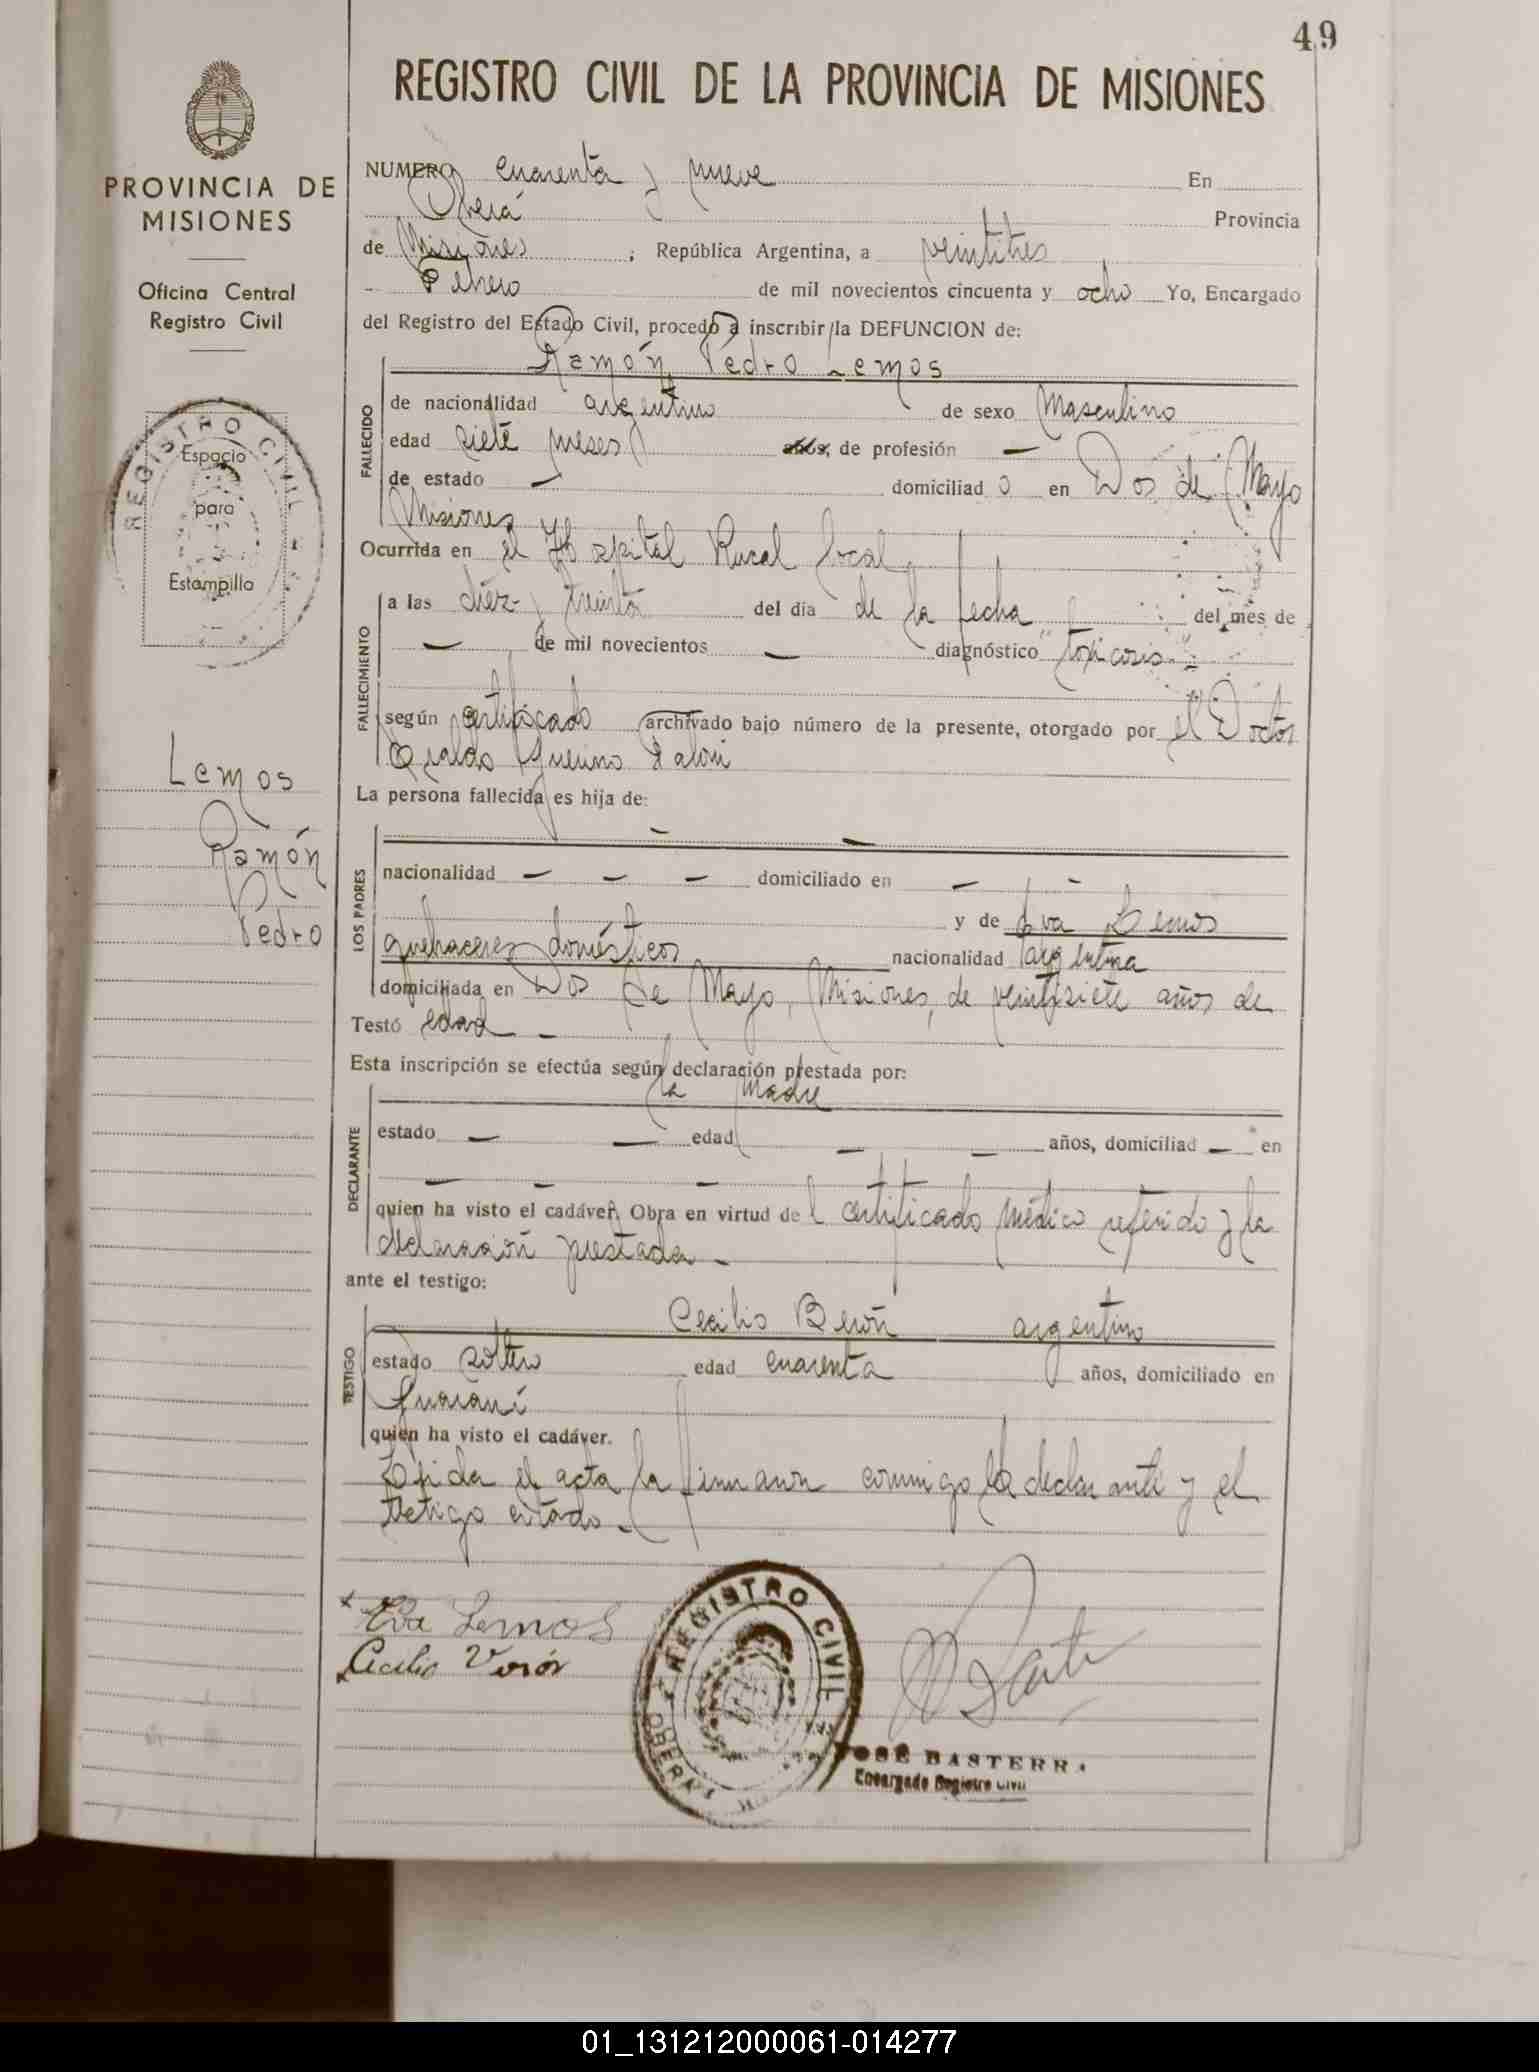 49
REGISTRO CIVIL DE LA PROVINCIA DE MISIONES
PROVINCIA DE
MISIONES
Oficina Central
Registro Civil
REGISTRO CIVIL
Espacio
para
Estampilla
Lemos
Ramón
Pedro
NUMERO cuarenta y nueve En
Oberá Provincia
de Misiones ; República Argentina, a veintitres
Febrero de mil novecientos cincuenta y ocho Yo, Encargado
del Registro del Estado Civil, procedo a inscribir la DEFUNCION de:
Ramón Pedro Lemos
FALLECIDO
de nacionalidad argentino de sexo Masculino
edad siete meses años, de profesión —
de estado — domiciliado en Dos de Mayo
Misiones
Ocurrida en el Hospital Rural local
FALLECIMIENTO
a las diez y treinta del día de la fecha del mes de
— de mil novecientos — diagnóstico "toxicosis"
según certificado archivado bajo número de la presente, otorgado por el Doctor
Guerino
La persona fallecida es hija de:
— —
LOS PADRES
nacionalidad — — — domiciliado en — —
y de Eva Lemos
quehaceres domésticos nacionalidad argentina
domiciliada en Dos de Mayo, Misiones, de veintisiete años de
Testó edad —
Esta inscripción se efectúa según declaración prestada por:
la madre
DECLARANTE
estado — — edad — — años, domiciliad — en
— — —
quien ha visto el cadáver. Obra en virtud del certificado médico referido y la
declaración prestada —
ante el testigo:
Cecilio Berón argentino
TESTIGO
estado soltero edad cuarenta años, domiciliado en
Guaraní
quien ha visto el cadáver.
Leida el acta la firmaron conmigo la declarante y el
testigo citado. —
x Eva Lemos
x Cecilio Verón
REGISTRO CIVIL
OBERA
JOSÉ BASTERRA
Encargado Registro Civil
01_131212000061-014277